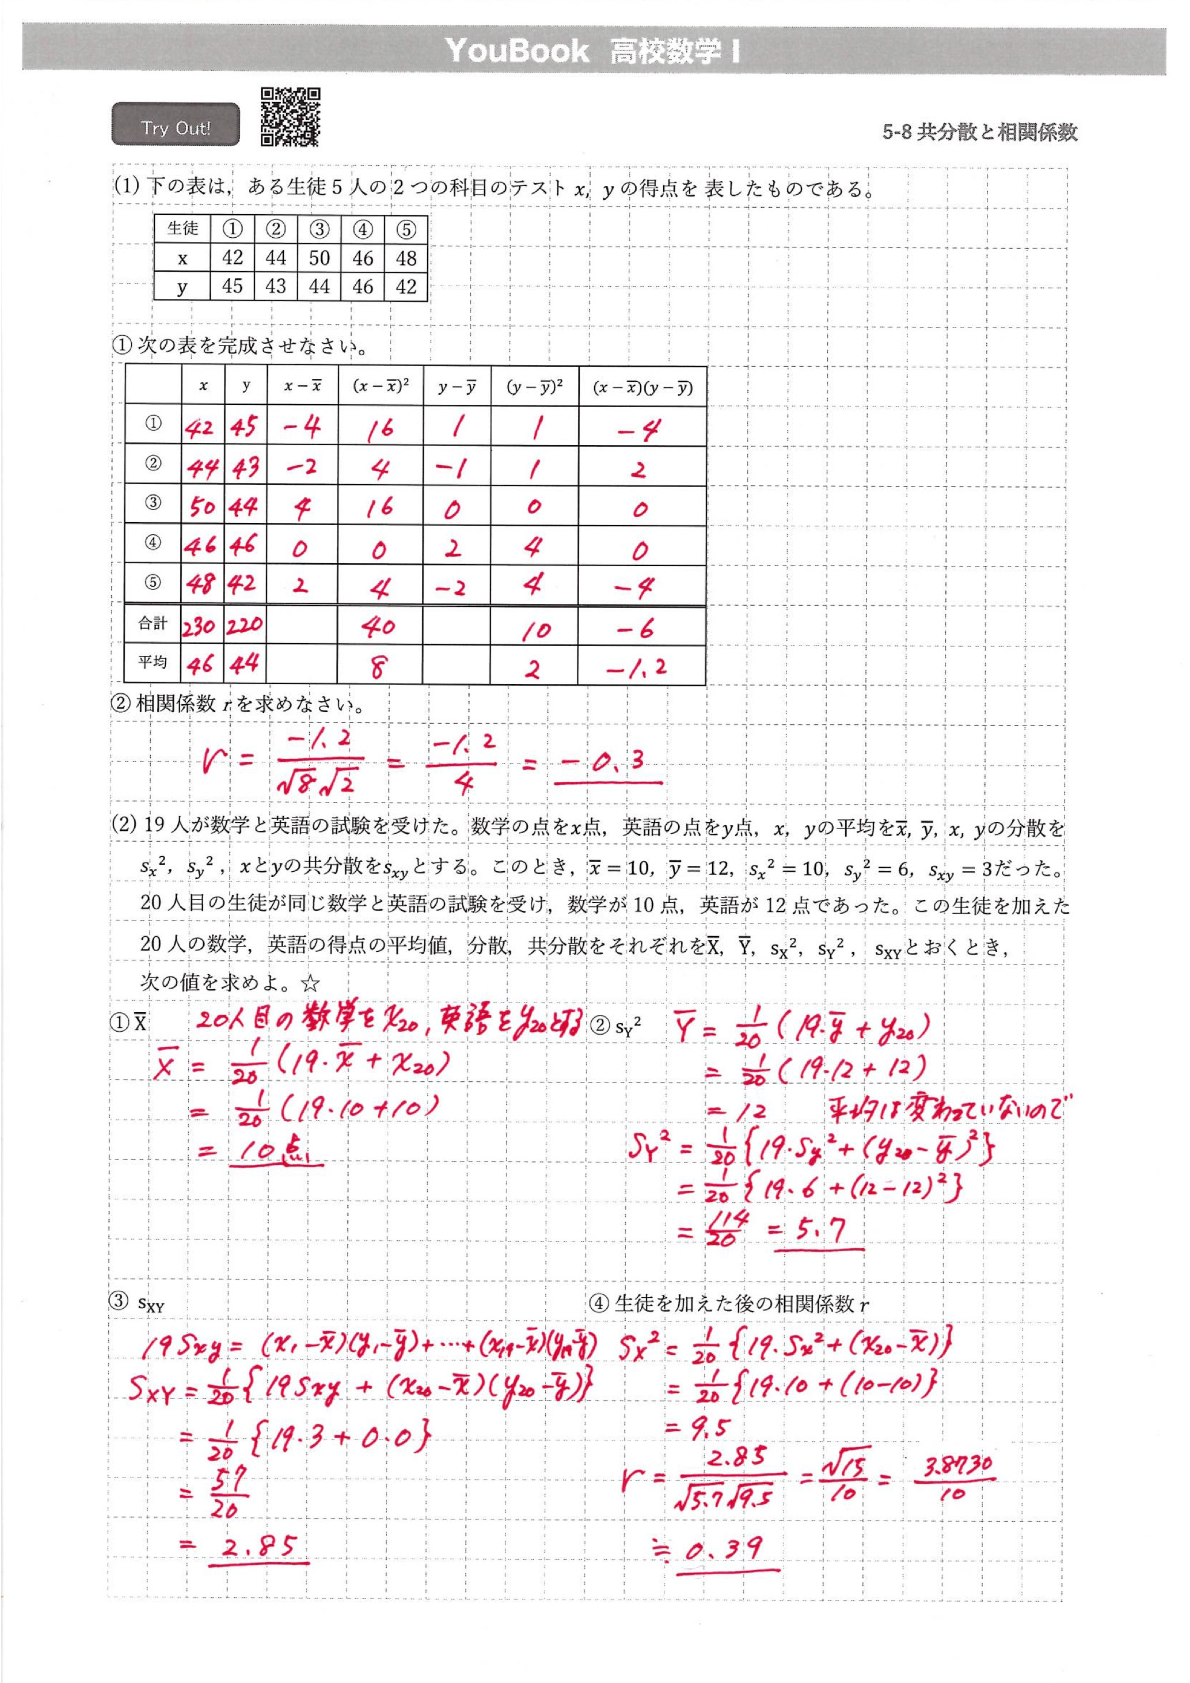 YouBook 高校数学 I
Try Out!
5-8 共分散と相関係数
(1) 下の表は，ある生徒 5 人の 2 つの科目のテスト x, y の得点を 表したものである。
生徒 ① ② ③ ④ ⑤
x 42 44 50 46 48
y 45 43 44 46 42
① 次の表を完成させなさい。
x y x − x̅ (x − x̅)² y − y̅ (y − y̅)² (x − x̅)(y − y̅)
① 42 45 −4 16 1 1 −4
② 44 43 −2 4 −1 1 2
③ 50 44 4 16 0 0 0
④ 46 46 0 0 2 4 0
⑤ 48 42 2 4 −2 4 −4
合計 230 220 40 10 −6
平均 46 44 8 2 −1.2
② 相関係数 r を求めなさい。
r = −1.2/√8√2 = −1.2/4 = −0.3
(2) 19 人が数学と英語の試験を受けた。数学の点をx点，英語の点をy点，x，yの平均をx̅, y̅, x, yの分散を
sx², sy²，xとyの共分散をsxyとする。このとき，x̅ = 10, y̅ = 12, sx² = 10, sy² = 6, sxy = 3だった。
20 人目の生徒が同じ数学と英語の試験を受け，数学が 10 点，英語が 12 点であった。この生徒を加えた
20 人の数学，英語の得点の平均値，分散，共分散をそれぞれをX̅, Y̅, sX², sY²，sXYとおくとき，
次の値を求めよ。☆
① X̅ 20人目の数学をx20, 英語をy20とする
X̅ = 1/20 (19·x̅ + x20)
= 1/20 (19·10+10)
= 10点
② sY² Y̅ = 1/20 (19·y̅ + y20)
= 1/20 (19·12 + 12)
= 12 平均は変わっていないので
SY² = 1/20 {19·Sy² + (y20 − y̅)²}
= 1/20 {19·6 + (12−12)²}
= 114/20 = 5.7
③ sXY
19Sxy = (x1−x̅)(y1−y̅)+…+(x19−x̅)(y19−y̅)
SXY = 1/20 {19Sxy + (x20−x̅)(y20−y̅)}
= 1/20 {19·3 + 0·0}
= 57/20
= 2.85
④ 生徒を加えた後の相関係数 r
Sx² = 1/20 {19·Sx² + (x20−x̅)}
= 1/20 {19·10 + (10−10)}
= 9.5
r = 2.85/√5.7√9.5 = √15/10 = 3.8730/10
≒ 0.39